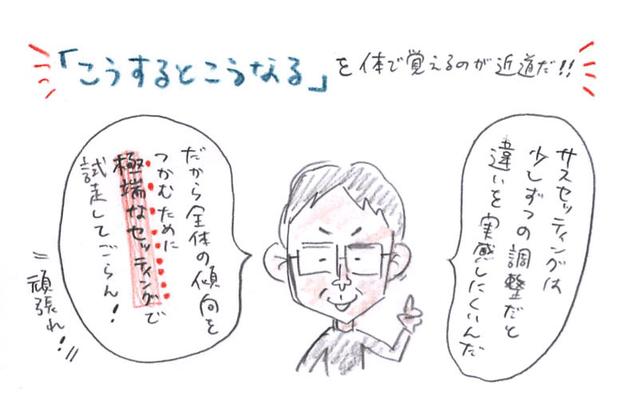 「こうするとこうなる」を体で覚えるのが近道だ!!
サスセッティングは
少しずつの調整だと
違いを実感しにくいんだ
だから全体の傾向を
つかむために
極端なセッティングで
試走してごらん!
頑張れ!